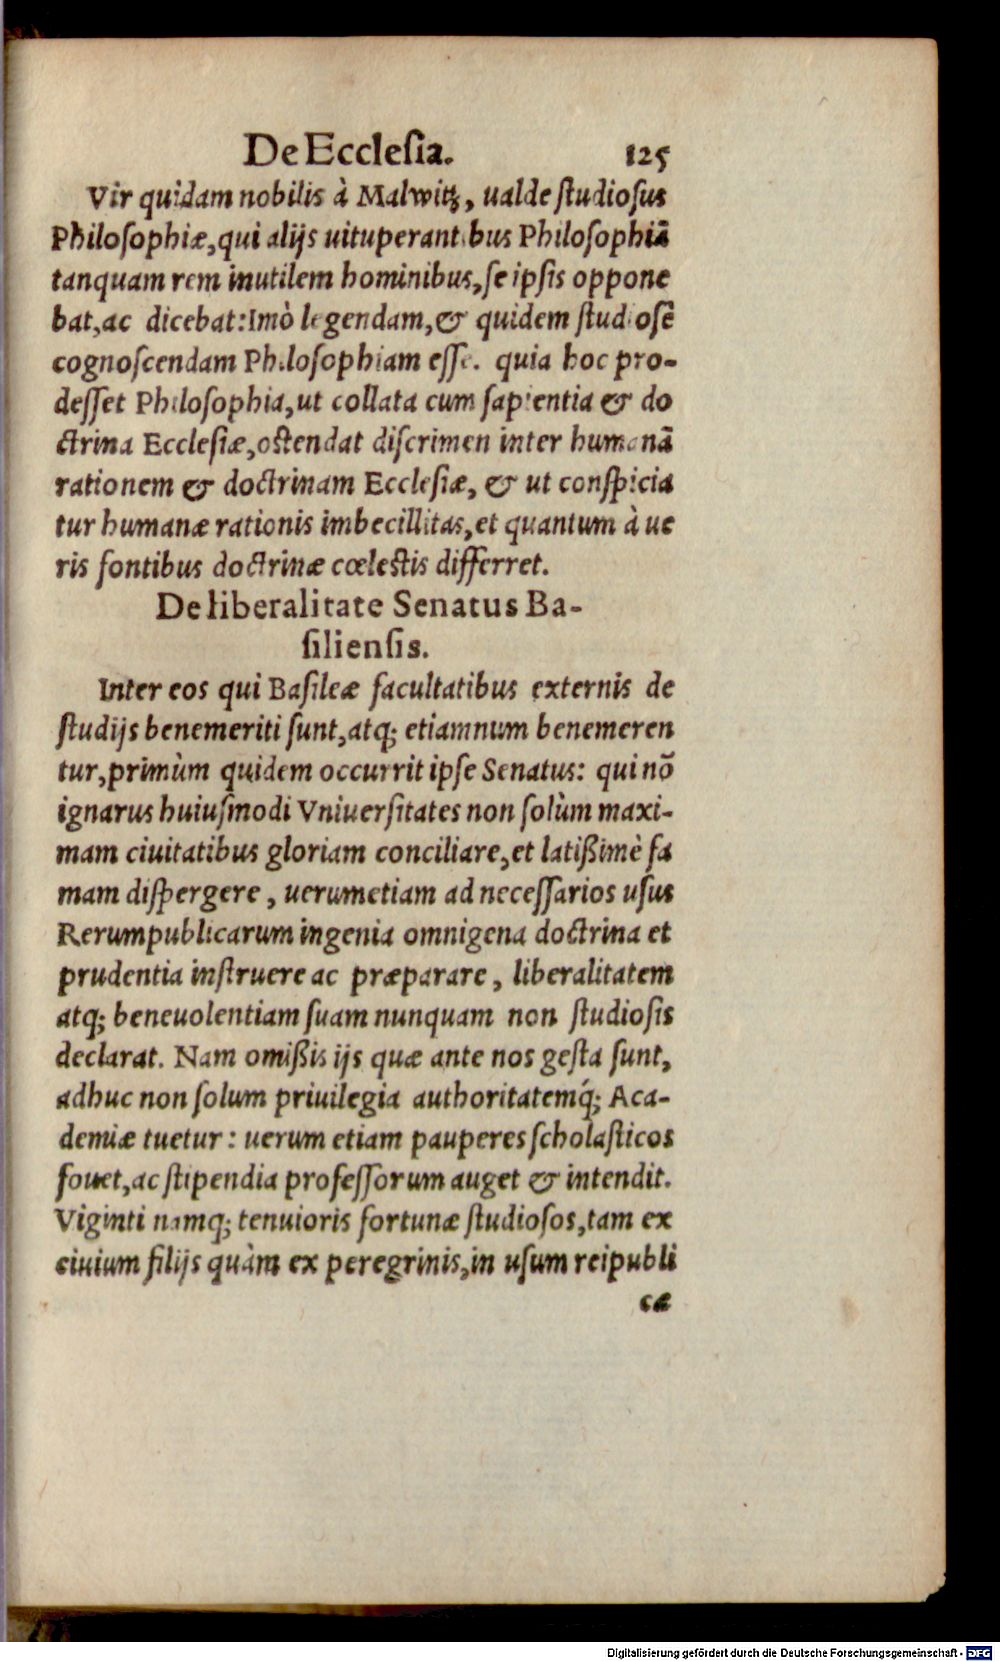 De Ecclesia. 125
Vir quidam nobilis à Malwitz, ualde studiosus
Philosophiæ, qui alijs uituperantibus Philosophiā
tanquam rem inutilem hominibus, se ipsis oppone
bat, ac dicebat: Imò legendam, & quidem studiosē
cognoscendam Philosophiam esse. quia hoc pro-
desset Philosophia, ut collata cum sapientia & do
ctrina Ecclesiæ, ostendat discrimen inter humanā
rationem & doctrinam Ecclesiæ, & ut conspicia
tur humanæ rationis imbecillitas, et quantum à ue
ris fontibus doctrinæ cœlestis differret.
De liberalitate Senatus Ba-
siliensis.
Inter eos qui Basileæ facultatibus externis de
studijs benemeriti sunt, atq; etiamnum benemeren
tur, primùm quidem occurrit ipse Senatus: qui nō
ignarus huiusmodi Vniuersitates non solùm maxi-
mam ciuitatibus gloriam conciliare, et latißimè fa
mam dispergere, uerumetiam ad necessarios usus
Rerumpublicarum ingenia omnigena doctrina et
prudentia instruere ac præparare, liberalitatem
atq; beneuolentiam suam nunquam non studiosis
declarat. Nam omißis ijs quæ ante nos gesta sunt,
adhuc non solum priuilegia authoritatemq́; Aca-
demiæ tuetur: uerum etiam pauperes scholasticos
fouet, ac stipendia professorum auget & intendit.
Viginti namq; tenuioris fortunæ studiosos, tam ex
ciuium filijs quàm ex peregrinis, in usum reipubli
cæ
Digitalisierung gefördert durch die Deutsche Forschungsgemeinschaft - DFG